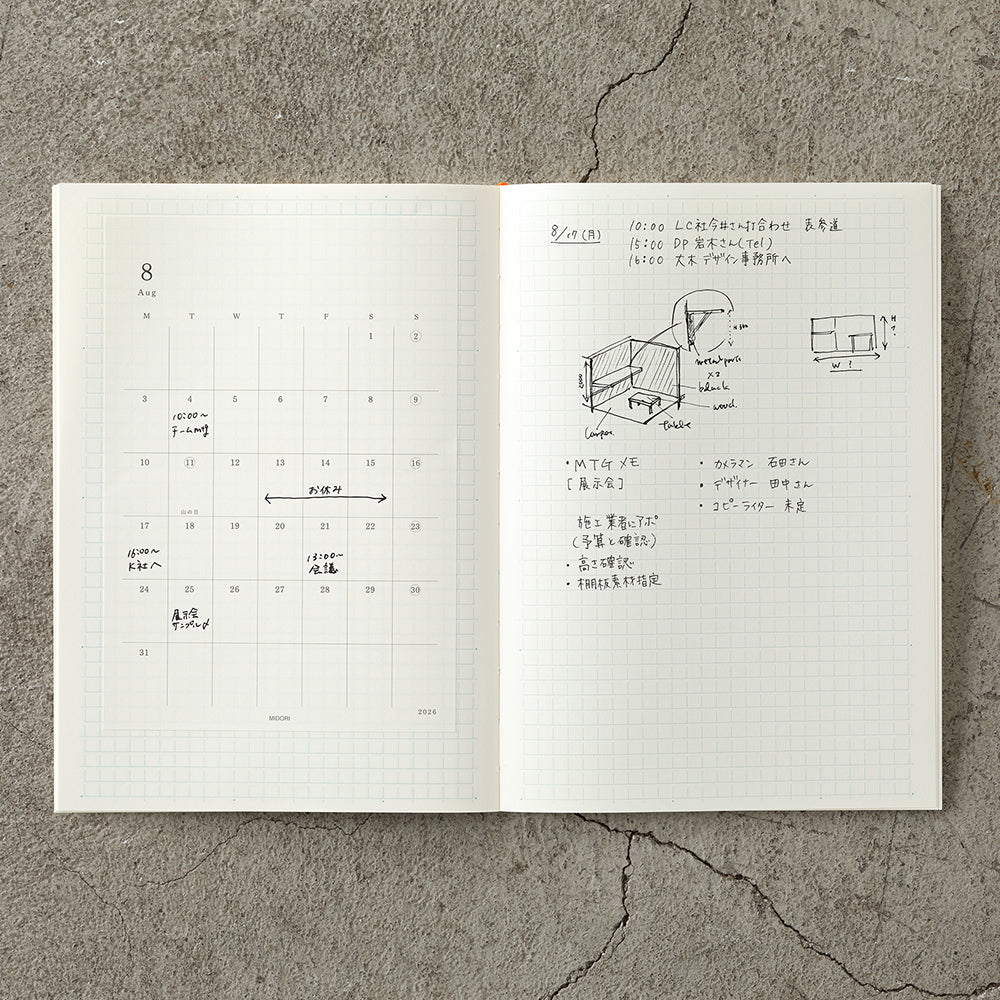 8
Aug
M T W T F S S
1 2
3 4 5 6 7 8 9
10:00〜
チームmtg
10 11 12 13 14 15 16
お休み
山の日
17 18 19 20 21 22 23
16:00〜
K社へ
13:00〜
会議
24 25 26 27 28 29 30
展示会
サンプル〆
31
MIDORI
2026
8/17(月)
10:00 LC社今井さん打合わせ 表参道
15:00 DP 岩木さん(Tel)
16:00 大木デザイン事務所へ
H
metal parts
×2
black
wood.
table
H
?
W ?
・MTGメモ
[展示会]
施工業者にアポ
(予算と確認)
・高さ確認
・棚板素材指定
・カメラマン 石田さん
・デザイナー 田中さん
・コピーライター 未定